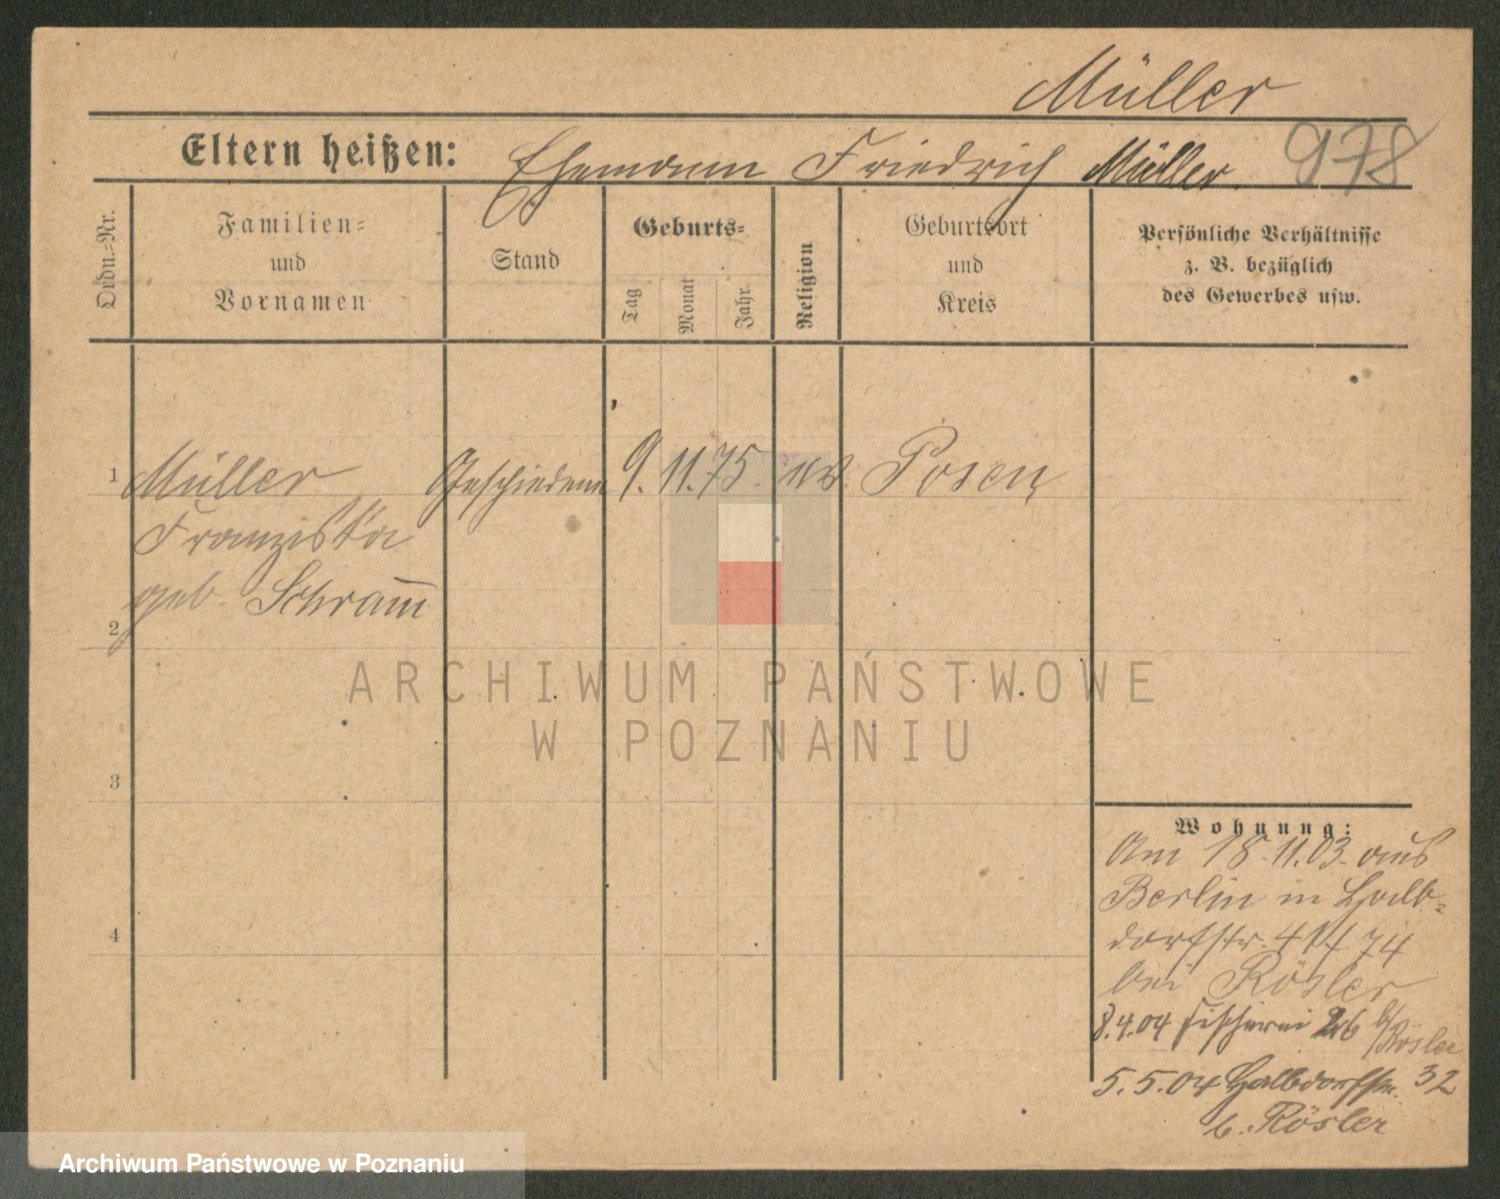 Müller
Eltern heißen: Ehemann Friedrich Müller. 978
Ordn.-Nr.
Familien-
und
Vornamen
Stand
Geburts-
Tag
Monat
Jahr.
Religion
Geburtsort
und
Kreis
Persönliche Verhältnisse
z. B. bezüglich
des Gewerbes usw.
1 Müller Geschiedene 9. 11. 75. Posen
Franziska
geb. Schram̅
2
3
4
Wohnung:
Am 18.11.03. aus
Berlin in Halb-
dorfstr. 74
bei Rösler
8.4.04 Fischerei 26 b/Rösler
5.5.04 Halbdorfstr. 32
b. Rösler
ARCHIWUM PAŃSTWOWE
W POZNANIU
Archiwum Państwowe w Poznaniu